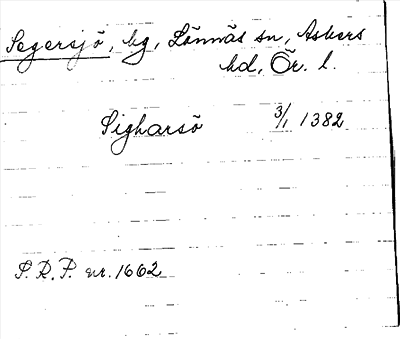 Segersjö, hg, Lännäs sn, Askers
hd, Ör. l.
Sigharsö 3/1 1382
S.R.P. nr. 1662